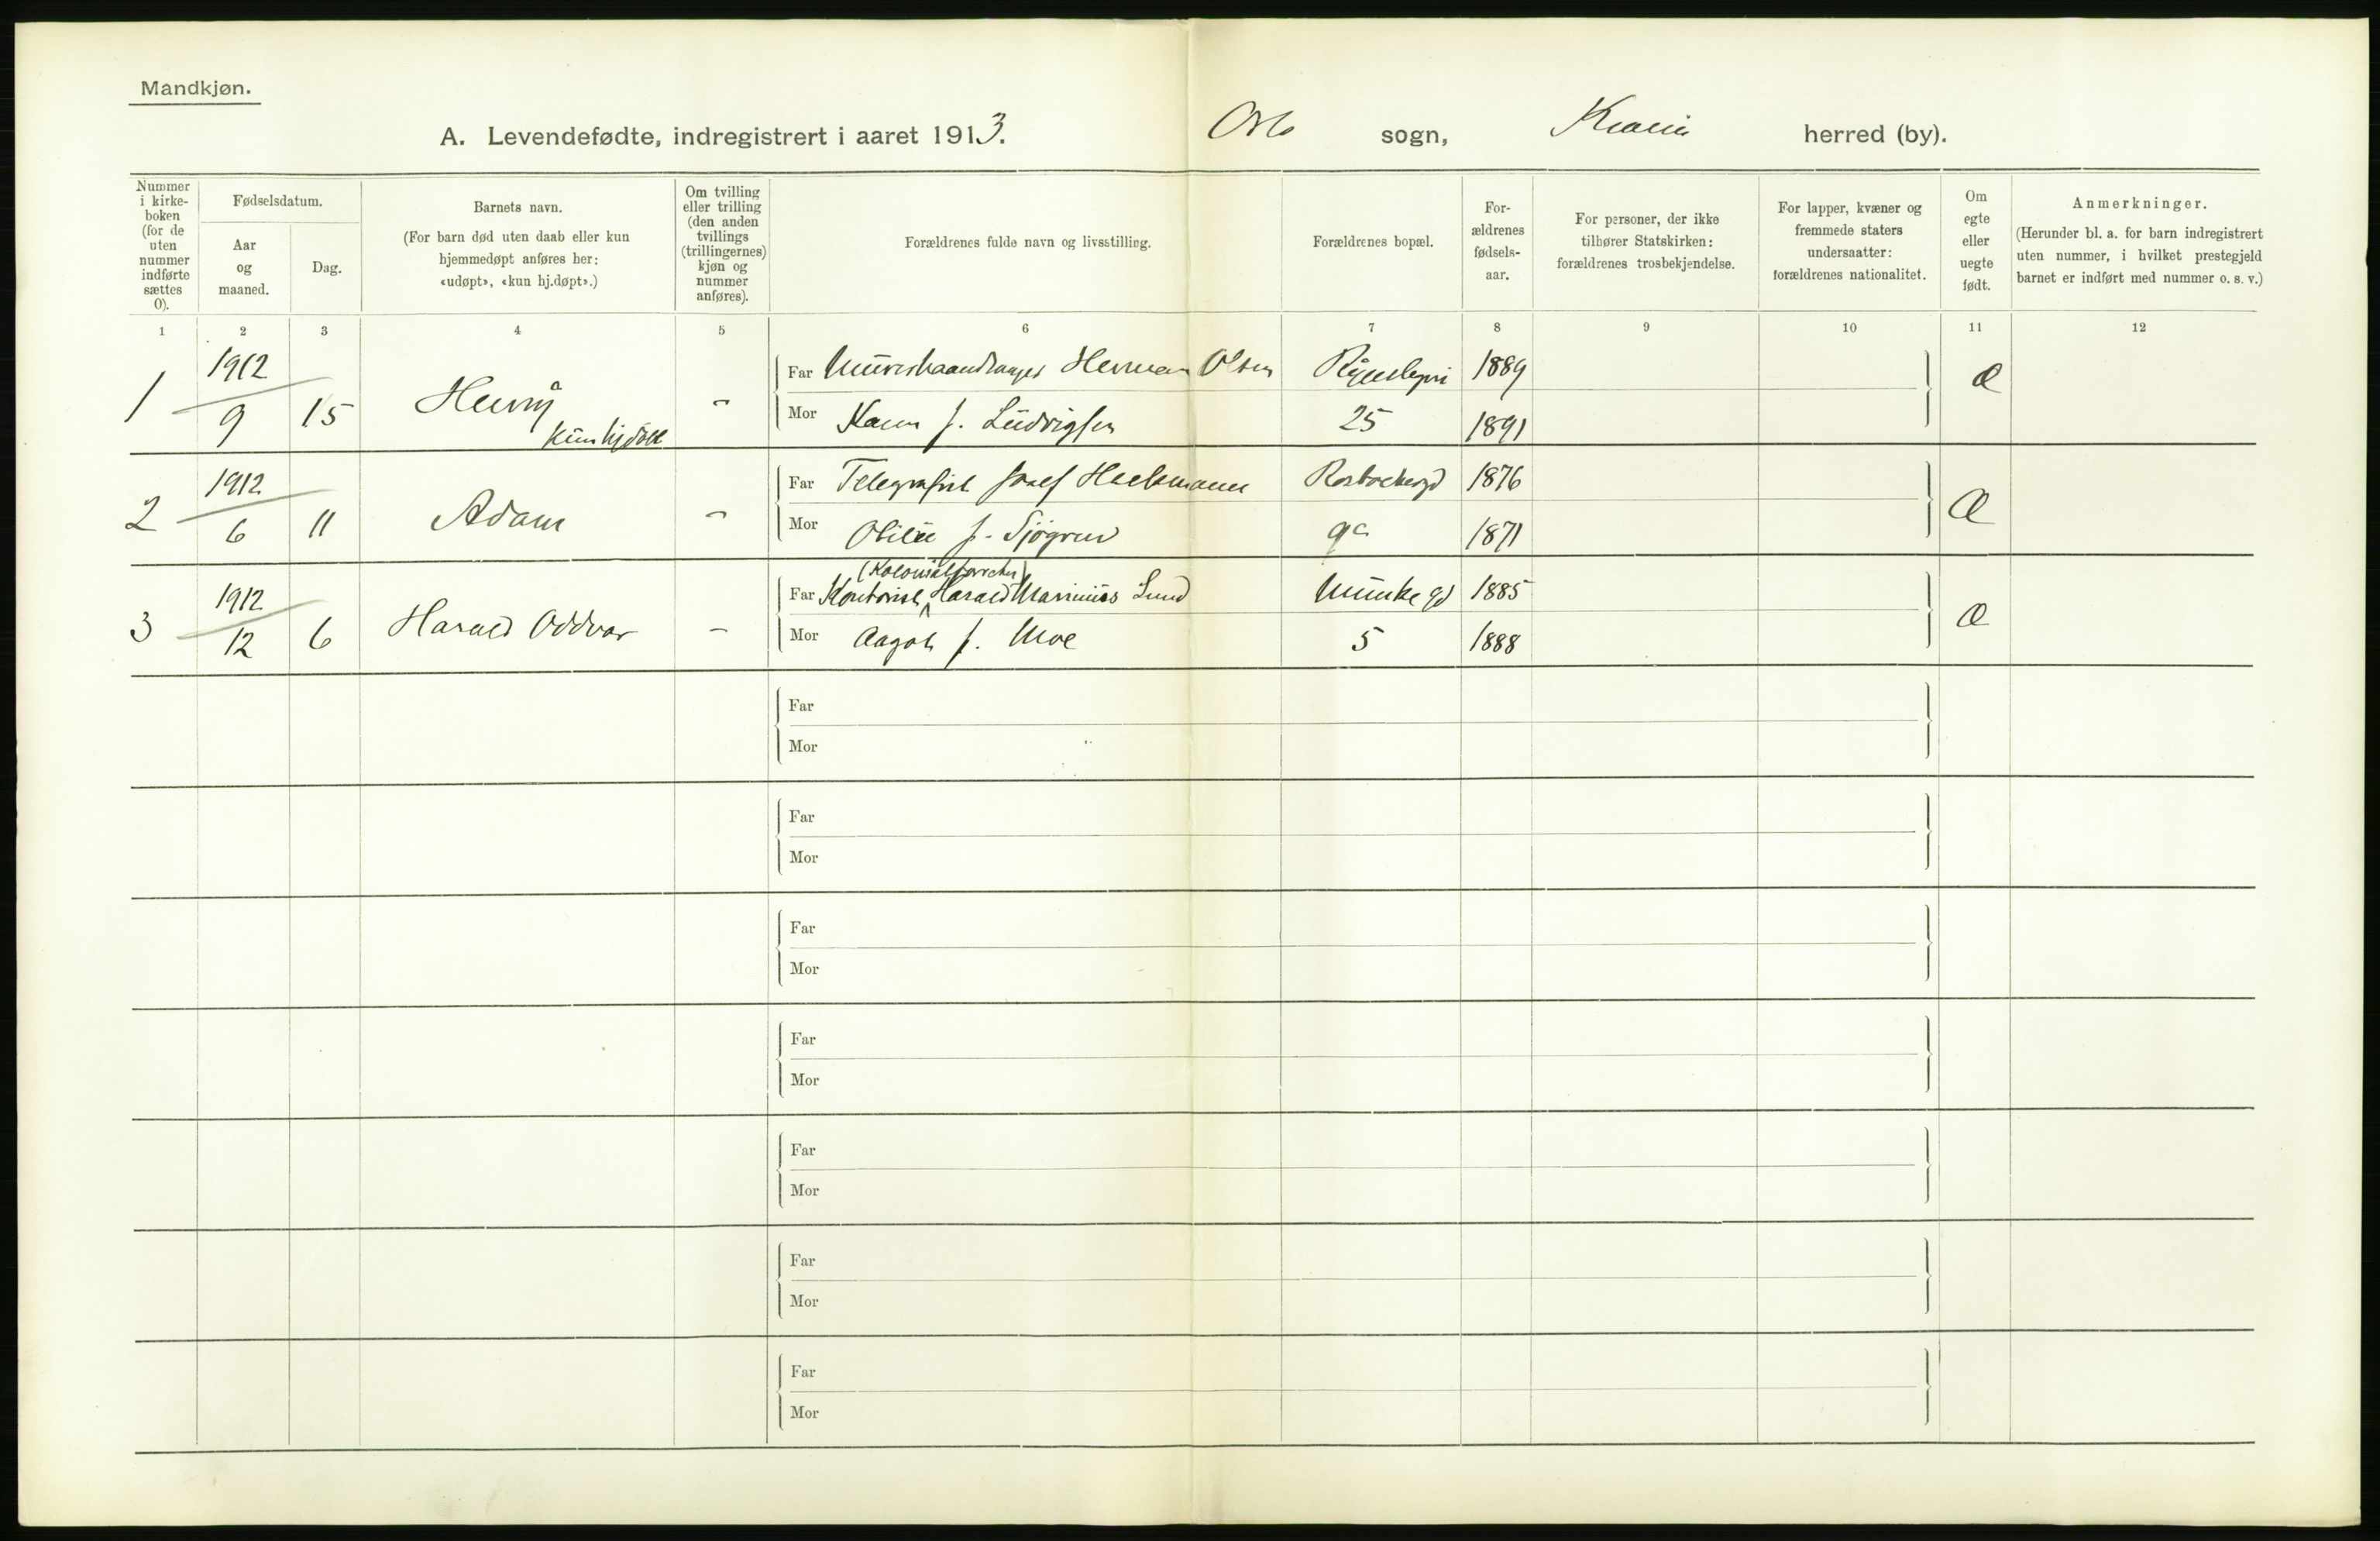 Mandkjøn.
A. Levendefødte, indregistrert i aaret 1913. Oslo sogn, Kr.ania herred (by).
Nummer i kirke-boken (for de uten nummer indførte sættes 0).
Fødselsdatum.
Aar og maaned.
Dag.
Barnets navn.
(For barn død uten daab eller kun hjemmedøpt anføres her: «udøpt», «kun hj.døpt».)
Om tvilling eller trilling (den anden tvillings (trillingernes) kjøn og nummer anføres).
Forældrenes fulde navn og livsstilling.
Forældrenes bopæl.
For-ældrenes fødsels-aar.
For personer, der ikke tilhører Statskirken: forældrenes trosbekjendelse.
For lapper, kvæner og fremmede staters undersaatter: forældrenes nationalitet.
Om egte eller uegte født.
Anmerkninger.
(Herunder bl. a. for barn indregistrert uten nummer, i hvilket prestegjeld barnet er indført med nummer o. s. v.)
1 2 3 4 5 6 7 8 9 10 11 12
1 1912 9 15 Henry kun hjdøbt -
Far Murerhaandlanger Herman Olsen 1889 Æ
Mor f. Ludvigsen 25 1891
2 1912 6 11 Adam -
Far Telegrafist Josef 1876 Æ
Mor f. Sjøgren 9c 1871
3 1912 12 6 Harald Oddvar -
(Kolonial
Far Kontorist Harald Marinius Lund Munkegd 1885 Æ
Mor Aagot f. Moe 5 1888
Far
Mor
Far
Mor
Far
Mor
Far
Mor
Far
Mor
Far
Mor
Far
Mor